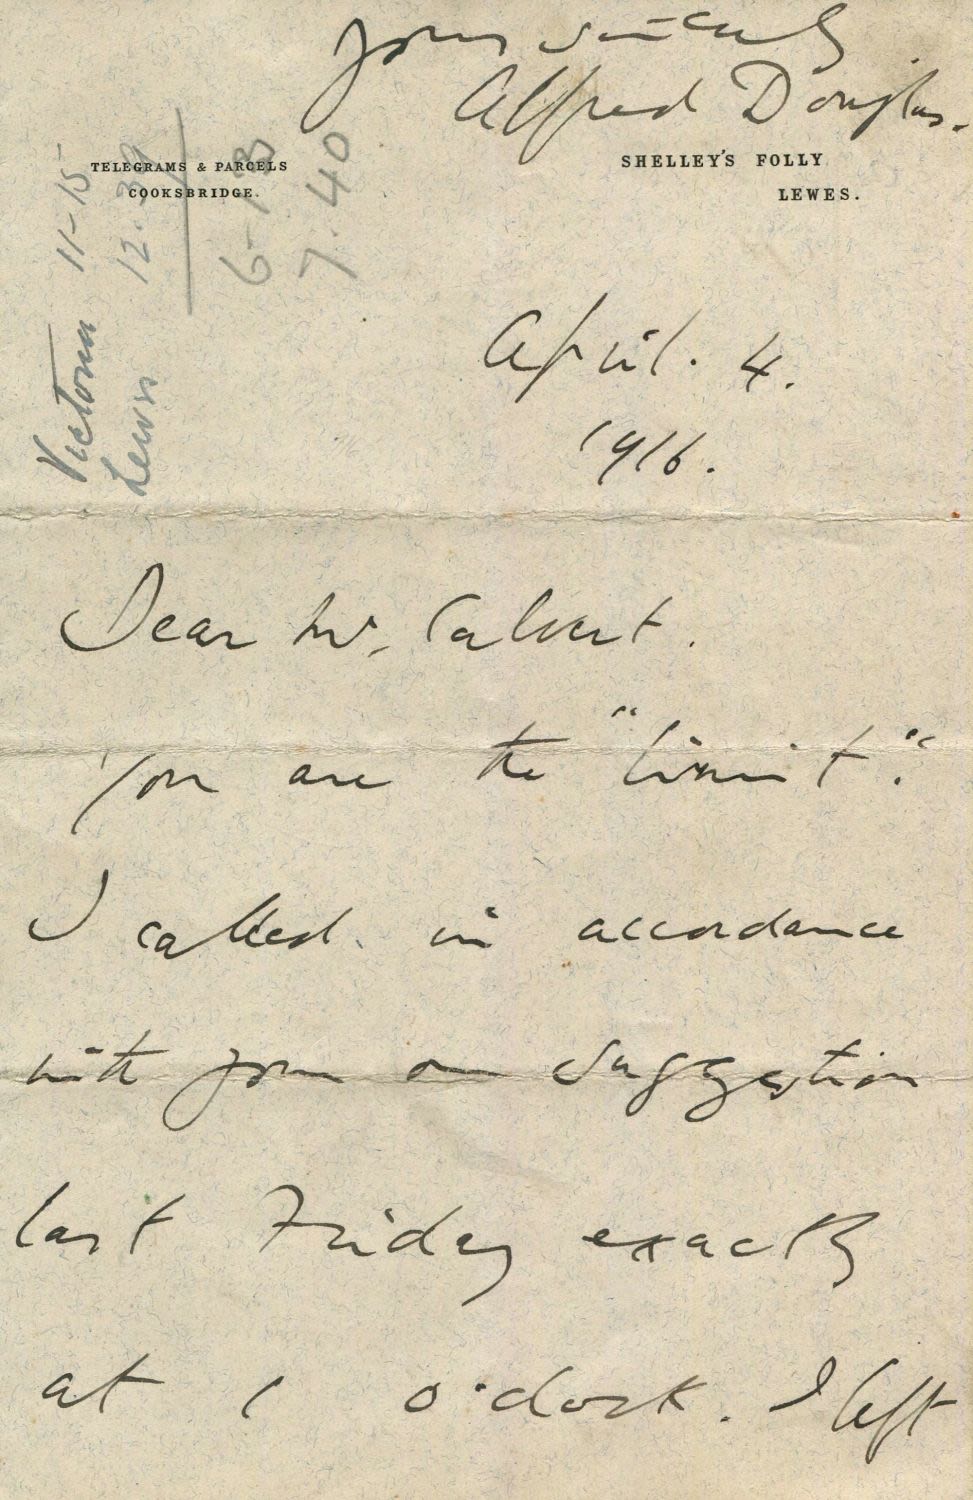 Yours sincerely
Alfred Douglas.
TELEGRAMS & PARCELS
COOKSBRIDGE.
SHELLEY'S FOLLY
LEWES.
Victoria 11-15
Lewes 12.39
6-13
7.40
April. 4.
1916.
Dear Mr. Calvert.
You are the "limit".
I called in accordance
with your own suggestion
last Friday exactly
at 1 o'clock. I left